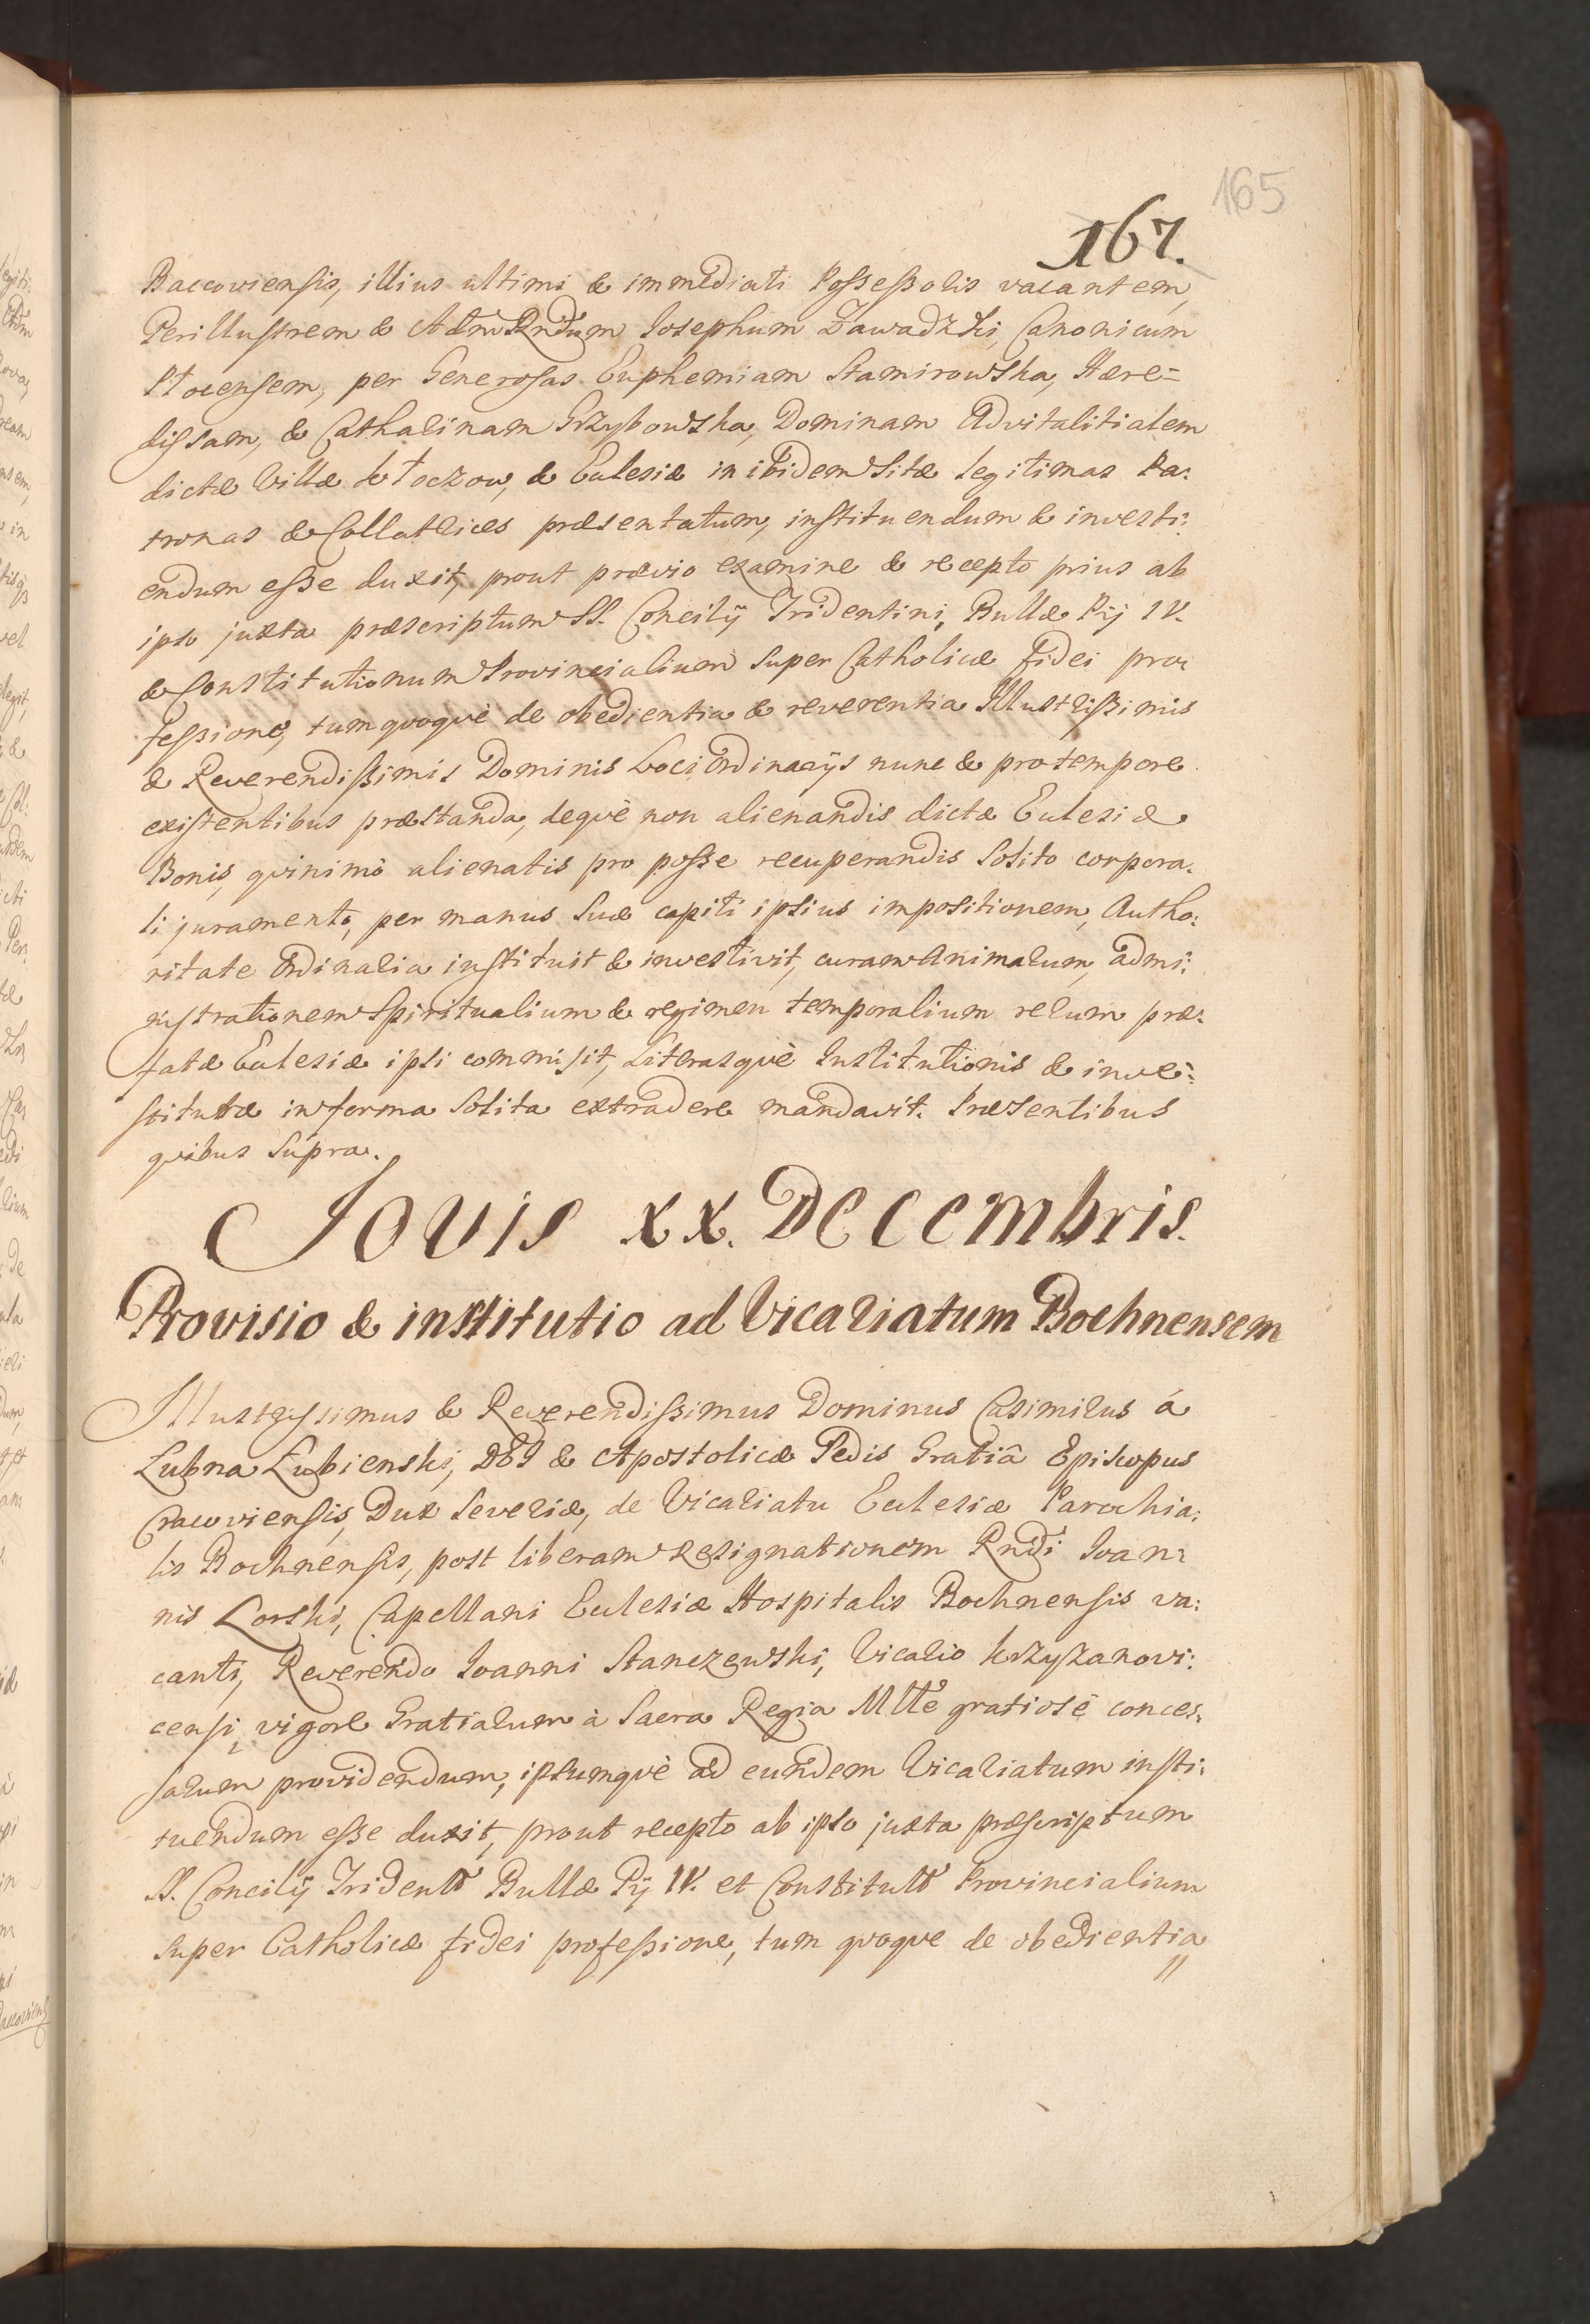 165
167.
Raccoviensis, illius ultimi & immediati Possessoris vacantem,
Perillustrem & Adm Rndum Josephum Zawadzki, Canonicum
per Generosas Euphemiam Stamirowska, Hære=
dissam, & Catharinam Grzybowska, Dominam Advitalitialem
dictæ Villæ Kłoczow, & Ecclesiæ inibidem sitæ legitimas Pa:
tronas & Collatrices præsentatum, instituendum & investi:
endum esse duxit, prout prævio examine & recepto prius ab
ipso juxta præscriptum SS. Concilÿ Tridentini, Bullæ Pij IV.
& Constitutionum Provincialium super Catholicæ fidei pro:
fessione, tum quoquè de obedientia & reverentia Illustrissimis
& Reverendissimis Dominis Loci Ordinarÿs nunc & pro tempore
existentibus præstanda, dequè non alienandis dictæ Ecclesiæ
Bonis, quinimò alienatis pro posse recuperandis solito corpora:
li juramento, per manus suæ capiti ipsius impositionem, Autho:
ritate Ordinaria instituit & investivit, curam Animarum, admi:
nistrationem Spiritualium & regimen temporalium rerum præ:
fatæ Ecclesiæ ipsi commisit, Literasquè Institutionis & inve:
stituræ in forma solita extradere mandavit. Præsentibus
quibus supra.
Jovis XX. Decembris.
Provisio & institutio ad Vicariatum Bochnensem
Illustrissimus & Reverendissimus Dominus Casimirus á
Lubna Łubienski, DEI & Apostolicæ Sedis Gratiâ Episcopus
Cracoviensis, Dux Severiæ, de Vicariatu Ecclesiæ Parochia:
lis Bochnensis, post liberam resignationem Rndi Ioan:
nis Lorski, Capellani Ecclesiæ Hospitalis Bochnensis va:
canti, Reverendo Ioanni Stanczewski, Vicario Krzyzanovi:
censi, vigore Gratiarum à Sacra Regia Mtte gratiosè conces:
sarum providendum, ipsumquè ad eundem Vicariatum insti:
tuendum esse duxit, prout recepto ab ipso juxta præscriptum
SS. Concilÿ Tridentt Bullæ Pÿ IV. et Constitutt Provincialium
super Catholicæ fidei professione, tum quoque de obedientia